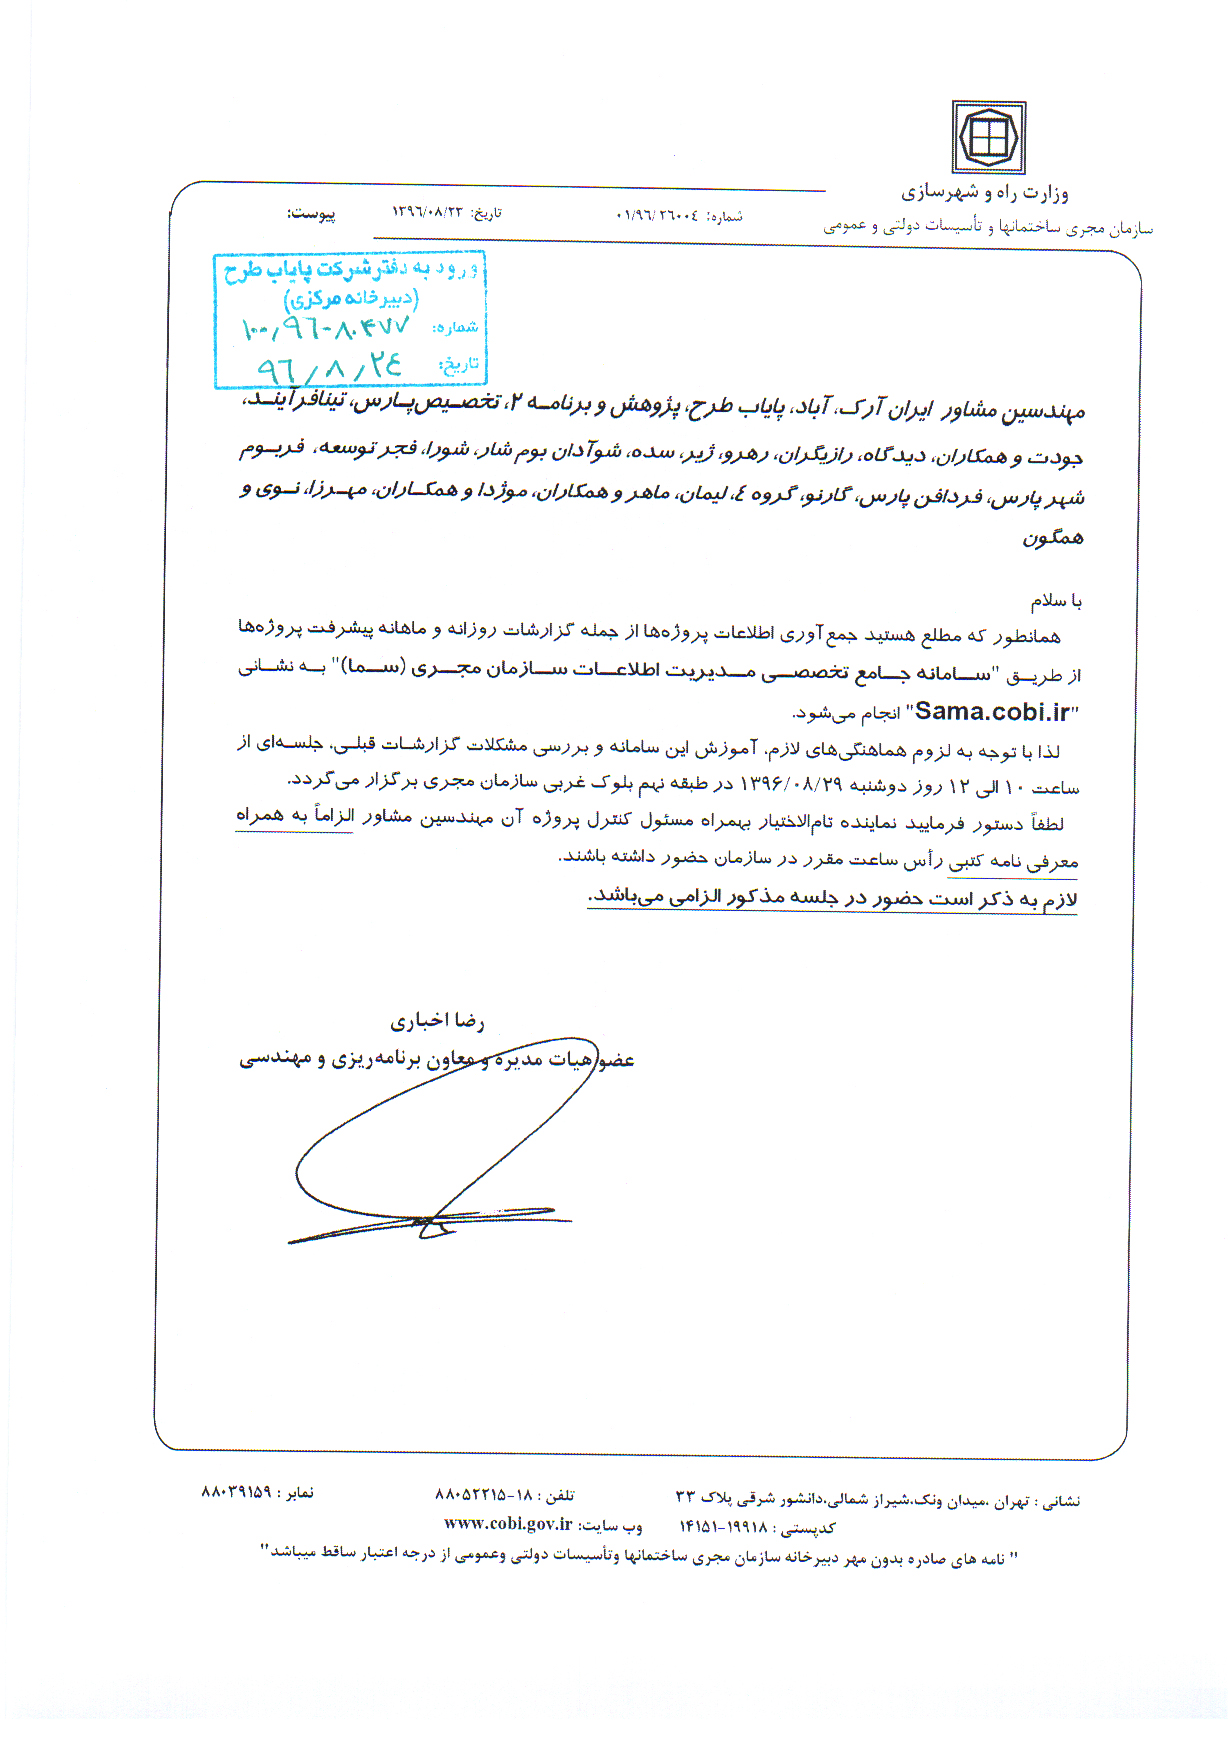 وزارت راه و شهرسازی
سازمان مجری ساختمانها و تأسیسات دولتی و عمومی
شماره: ۰۱/۹۶/۲۶۰۰۴
تاریخ: ۱۳۹۶/۰۸/۲۳
پیوست:
ورود به دفتر شرکت پایاب طرح
(دبیرخانه مرکزی)
شماره: ۱۰۰٫۹۶-۸۰۴۷۷
تاریخ: ۹۶/۸/۲۴
مهندسین مشاور ایران آرک، آباد، پایاب طرح، پژوهش و برنامه ۲، تخصیص پارس، تینافرآیند،
جودت و همکاران، دیدگاه، رازیگران، رهرو، ژیر، سده، شوآدان بوم شار، شورا، فجر توسعه، فربوم
شهر پارس، فردافن پارس، گارنو، گروه ٤، لیمان، ماهر و همکاران، موژدا و همکاران، مهرزا، نوی و
همگون
با سلام
همانطور که مطلع هستید جمع‌آوری اطلاعات پروژه‌ها از جمله گزارشات روزانه و ماهانه پیشرفت پروژه‌ها
از طریق "سامانه جامع تخصصی مدیریت اطلاعات سازمان مجری (سما)" به نشانی
"Sama.cobi.ir" انجام می‌شود.
لذا با توجه به لزوم هماهنگی‌های لازم، آموزش این سامانه و بررسی مشکلات گزارشات قبلی، جلسه‌ای از
ساعت ۱۰ الی ۱۲ روز دوشنبه ۱۳۹۶/۰۸/۲۹ در طبقه نهم بلوک غربی سازمان مجری برگزار می‌گردد.
لطفاً دستور فرمایید نماینده تام‌الاختیار بهمراه مسئول کنترل پروژه آن مهندسین مشاور الزاماً به همراه
معرفی نامه کتبی رأس ساعت مقرر در سازمان حضور داشته باشند.
لازم به ذکر است حضور در جلسه مذکور الزامی می‌باشد.
رضا اخباری
عضو هیات مدیره و معاون برنامه‌ریزی و مهندسی
نشانی : تهران ،میدان ونک،شیراز شمالی،دانشور شرقی پلاک ۳۳
تلفن : ۱۸-۸۸۰۵۲۲۱۵
نمابر : ۸۸۰۳۹۱۵۹
کدپستی : ۱۹۹۱۸-۱۴۱۵۱
وب سایت: www.cobi.gov.ir
" نامه های صادره بدون مهر دبیرخانه سازمان مجری ساختمانها وتأسیسات دولتی وعمومی از درجه اعتبار ساقط میباشد"